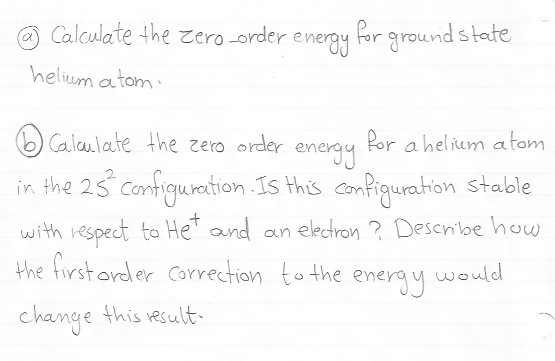 ⓐ Calculate the zero-order energy for ground state
helium atom.
ⓑ Calculate the zero order energy for a helium atom
in the 2S² configuration. Is this configuration stable
with respect to He⁺ and an electron? Describe how
the first order correction to the energy would
change this result.